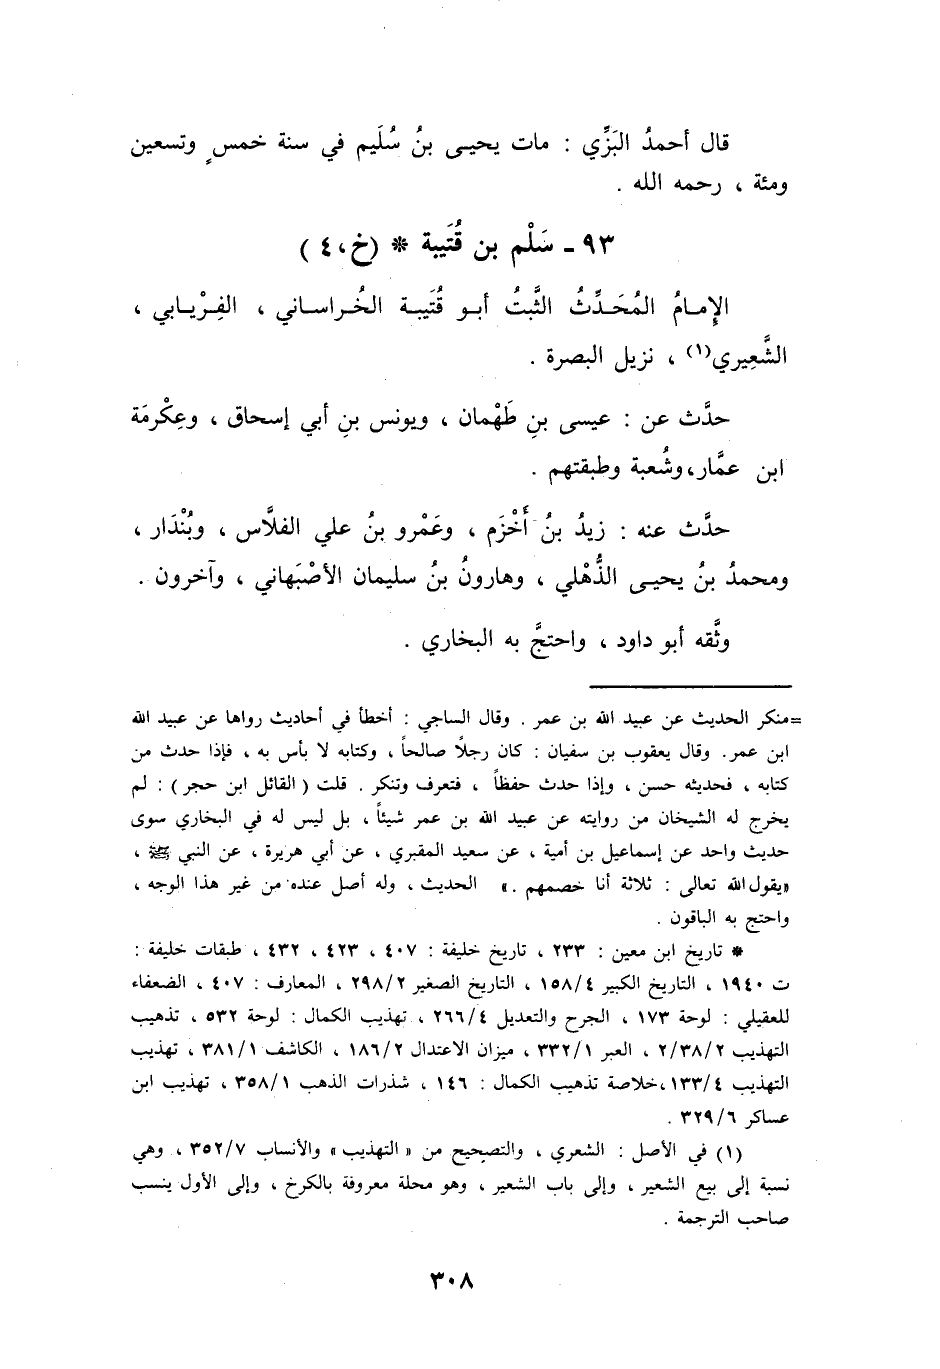 قال أحمدُ البَزِّي : مات يحيـى بنُ سُلَيم في سنة خمسٍ وتسعين
ومئة ، رحمه الله .
٩٣ - سَلْم بن قُتَيبة * (خ،٤)
الإِمـامُ المُحَـدِّثُ الثَّبتُ أبـو قُتَيبـة الخُـراسـاني ، الفِـرْيـابي ،
الشَّعِيري(١) ، نزيل البصرة .
حدَّث عن : عيسى بنِ طَهْمان ، ويونس بنِ أبي إسحاق ، وعِكْرمَة
ابن عمَّار،وشُعبة وطبقتهم .
حدَّث عنه : زيدُ بنُ أَخْزَم ، وعَمْرو بنُ علي الفلاَّس ، وبُنْدَار ،
ومحمدُ بنُ يحيـى الذُّهْلي ، وهارونُ بنُ سليمان الأصْبَهاني ، وآخرون .
وثَّقه أبو داود ، واحتجَّ به البخاري .
=منكر الحديث عن عبيد الله بن عمر . وقال الساجي : أخطأ في أحاديث رواها عن عبيد الله
ابن عمر. وقال يعقوب بن سفيان : كان رجلاً صالحاً ، وكتابه لا بأس به ، فإذا حدث من
كتابه ، فحديثه حسن ، وإذا حدث حفظاً ، فتعرف وتنكر . قلت ( القائل ابن حجر ) : لم
يخرج له الشيخان من روايته عن عبيد الله بن عمر شيئاً ، بل ليس له في البخاري سوى
حديث واحد عن إسماعيل بن أمية ، عن سعيد المقبري ، عن أبي هريرة ، عن النبي ﷺ ،
«يقول الله تعالى : ثلاثة أنا خصمهم .» الحديث ، وله أصل عنده من غير هذا الوجه ،
واحتج به الباقون .
* تاريخ ابن معين : ٢٣٣ ، تاريخ خليفة : ٤٠٧ ، ٤٢٣ ، ٤٣٢ ، طبقات خليفة :
ت ١٩٤٠ ، التاريخ الكبير ١٥٨/٤ ، التاريخ الصغير ٢٩٨/٢ ، المعارف : ٤٠٧ ، الضعفاء
للعقيلي : لوحة ١٧٣ ، الجرح والتعديل ٢٦٦/٤ ، تهذيب الكمال : لوحة ٥٣٢ ، تذهيب
التهذيب ٢/٣٨/٢ ، العبر ٣٣٢/١ ، ميزان الاعتدال ١٨٦/٢ ، الكاشف ٣٨١/١ ، تهذيب
التهذيب ١٣٣/٤ ،خلاصة تذهيب الكمال : ١٤٦ ، شذرات الذهب ٣٥٨/١ ، تهذيب ابن
عساكر ٣٢٩/٦ .
(١) في الأصل : الشعري ، والتصحيح من « التهذيب » والأنساب ٣٥٢/٧ ، وهي
نسبة إلى بيع الشعير ، وإلى باب الشعير ، وهو محلة معروفة بالكرخ ، وإلى الأول ينسب
صاحب الترجمة .
٣٠٨